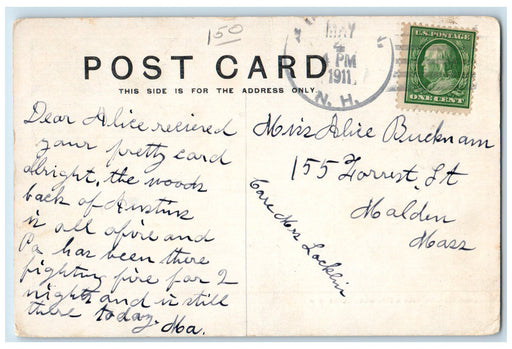 150
MAY
4
4 PM
1911
N. H.
U.S. POSTAGE
ONE CENT
POST CARD
THIS SIDE IS FOR THE ADDRESS ONLY
Dear Alice recieved
your pretty card
alright, the woods
back of Austins
is all afire and
Pa has been there
fighting fire for 2
nights and is still
there today. Ma.
Miss Alice Bucknam
155 Forrest St
Malden
Mass
Care Mrs Locklin